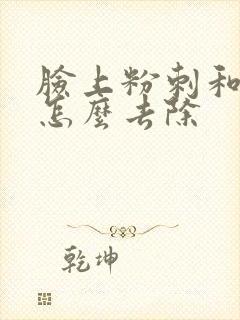 臉上粉刺和
怎麼去除
乾坤